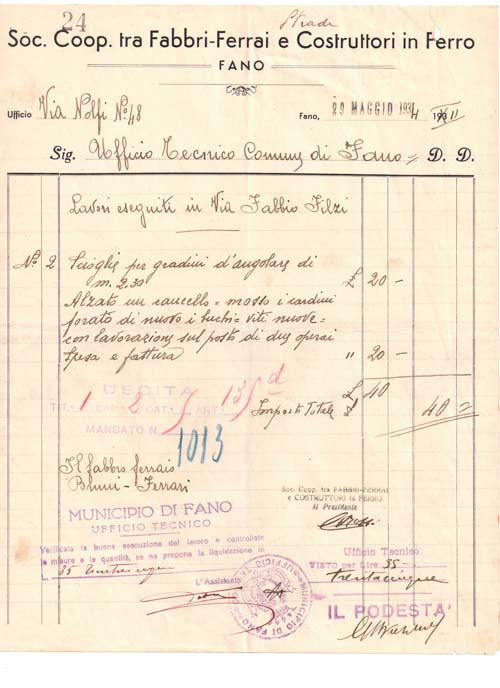 24
Strade
Soc. Coop. tra Fabbri-Ferrai e Costruttori in Ferro
FANO
Ufficio Via Nolfi N° 48
Fano, 29 MAGGIO 1934 193 XII
Sig. Ufficio Tecnico Comun di Fano = D. D.
Lavori eseguiti in Via Fabbio Filzi
N° 2 Soioglie per gradini d'angolare di
m. 2.30 £ 20 -
Alzato un cancello = mosso i cardini
forato di nuovo i buchi = viti nuove =
con lavorazione sul posto di due operai
spesa e fattura " 20 -
£ 40
Importo Totale £ 40 =
USCITA
TIT. 1 CAP. 5 CAT. 7 ART. 135 d
MANDATO N. 1013
Il fabbro ferraio
Bruni - Ferrari
MUNICIPIO DI FANO
UFFICIO TECNICO
Soc. Coop. tra FABBRI-FERRAI
e COSTRUTTORI in FERRO
Il Presidente
Verificata la buona esecuzione del lavoro e controllate
le misure e le quantità, se ne propone la liquidazione in
35
L'Assistente
MUNICIPIO DI FANO
Ufficio Tecnico
VISTO per Lire 35-
trentacinque
IL PODESTA'